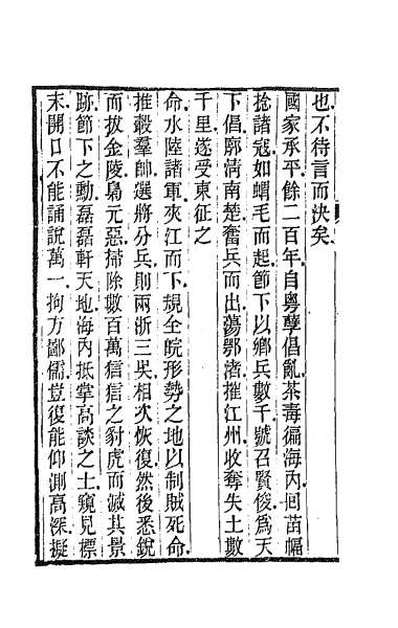 也不待言而決矣
國家承平餘二百年自粵孽倡亂荼毒徧海內囘苗幅
捻諸寇如蝟毛而起節下以鄉兵數千號召賢俊爲天
下倡廓清南楚奮兵而出蕩鄂渚摧江州收奪失土數
千里遂受東征之
命水陸諸軍夾江而下規全皖形勢之地以制賊死命
推轂羣帥選將分兵則兩浙三吳相次恢復然後悉銳
而拔金陵梟元惡掃除數百萬狺狺之豺虎而滅其景
跡節下之勳磊磊軒天地海內抵掌高談之士窺見標
末開口不能誦說萬一拘方鄙儒豈復能仰測高深擬